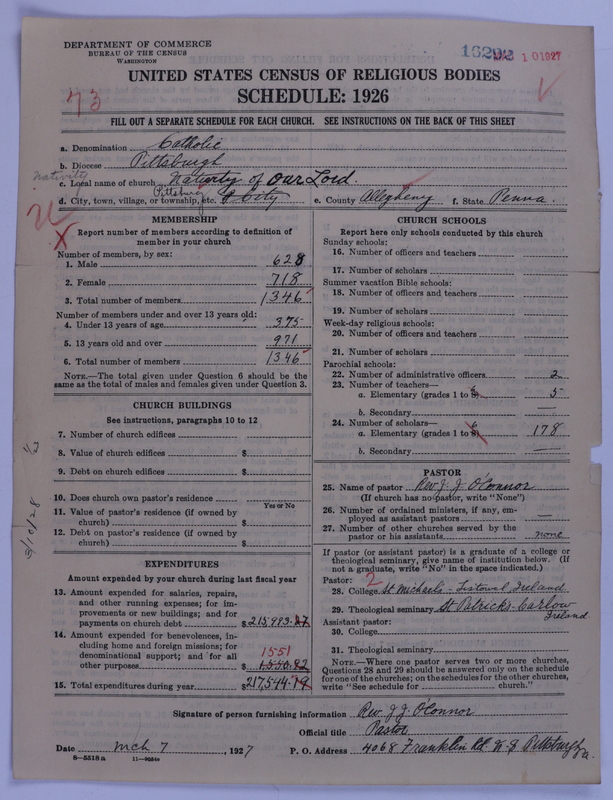 DEPARTMENT OF COMMERCE
BUREAU OF THE CENSUS
WASHINGTON
16292 MAR 10 1927
UNITED STATES CENSUS OF RELIGIOUS BODIES
SCHEDULE: 1926
73
FILL OUT A SEPARATE SCHEDULE FOR EACH CHURCH. SEE INSTRUCTIONS ON THE BACK OF THIS SHEET
a. Denomination Catholic
b. Diocese Pittsburgh
Nativity
c. Local name of church Nativity of Our Lord.
d. City, town, village, or township, etc. Pittsburg City e. County Allegheny f. State Penna.
MEMBERSHIP
Report number of members according to definition of
member in your church
Number of members, by sex:
1. Male 628
2. Female 718
3. Total number of members 1346
Number of members under and over 13 years old:
4. Under 13 years of age 375
5. 13 years old and over 971
6. Total number of members 1346
NOTE.—The total given under Question 6 should be
same as the total of males and females given under Question 3.
CHURCH BUILDINGS
See instructions, paragraphs 10 to 12
7. Number of church edifices
8. Value of church edifices $
9. Debt on church edifices $
10. Does church own pastor's residence
Yes or No
11. Value of pastor's residence (if owned by
church) $
12. Debt on pastor's residence (if owned by
church) $
EXPENDITURES
Amount expended by your church during last fiscal year
13. Amount expended for salaries, repairs,
and other running expenses; for im-
provements or new buildings; and for
payments on church debt $215,993.27
14. Amount expended for benevolences, in-
cluding home and foreign missions; for
denominational support; and for all
other purposes 1551 $1550.92
15. Total expenditures during year $217,544.19
CHURCH SCHOOLS
Report here only schools conducted by this church
Sunday schools:
16. Number of officers and teachers
17. Number of scholars
Summer vacation Bible schools:
18. Number of officers and teachers
19. Number of scholars
Week-day religious schools:
20. Number of officers and teachers
21. Number of scholars
Parochial schools:
22. Number of administrative officers 2
23. Number of teachers—
a. Elementary (grades 1 to 8) 5
b. Secondary —
24. Number of scholars—
6
a. Elementary (grades 1 to 8) 178
b. Secondary —
PASTOR
25. Name of pastor Rev. J. J. O'Connor
(If church has no pastor, write "None")
26. Number of ordained ministers, if any, em-
ployed as assistant pastors —
27. Number of other churches served by the
pastor or his assistants none
If pastor (or assistant pastor) is a graduate of a college or
theological seminary, give name of institution below. (If
not a graduate, write "No" in the space indicated.)
Pastor: 2
28. College St Michaels - Listowel Ireland
29. Theological seminary St Patricks - Carlow
Ireland
Assistant pastor:
30. College
31. Theological seminary
NOTE.—Where one pastor serves two or more churches,
Questions 28 and 29 should be answered only on the schedule
for one of the churches; on the schedules for the other churches,
write "See schedule for church."
Signature of person furnishing information Rev. J. J. O'Connor
Official title Pastor
Date Mch 7, 1927 P. O. Address 4068 Franklin Rd. N-S Pittsburgh Pa.
8—5518a